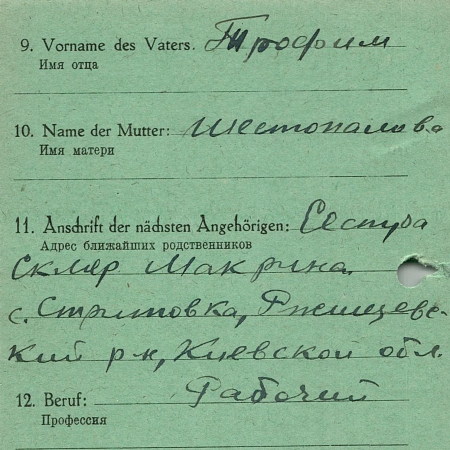 9. Vorname des Vaters. Трофим
Имя отца
10. Name der Mutter: Шестопалова
Имя матери
11. Anschrift der nächsten Angehörigen: Сестра
Адрес ближайших родственников
Скляр Макрина.
с. Стритовка, Ржищевс-
кий р-н, Киевской обл.
12. Beruf: Рабочий
Профессия